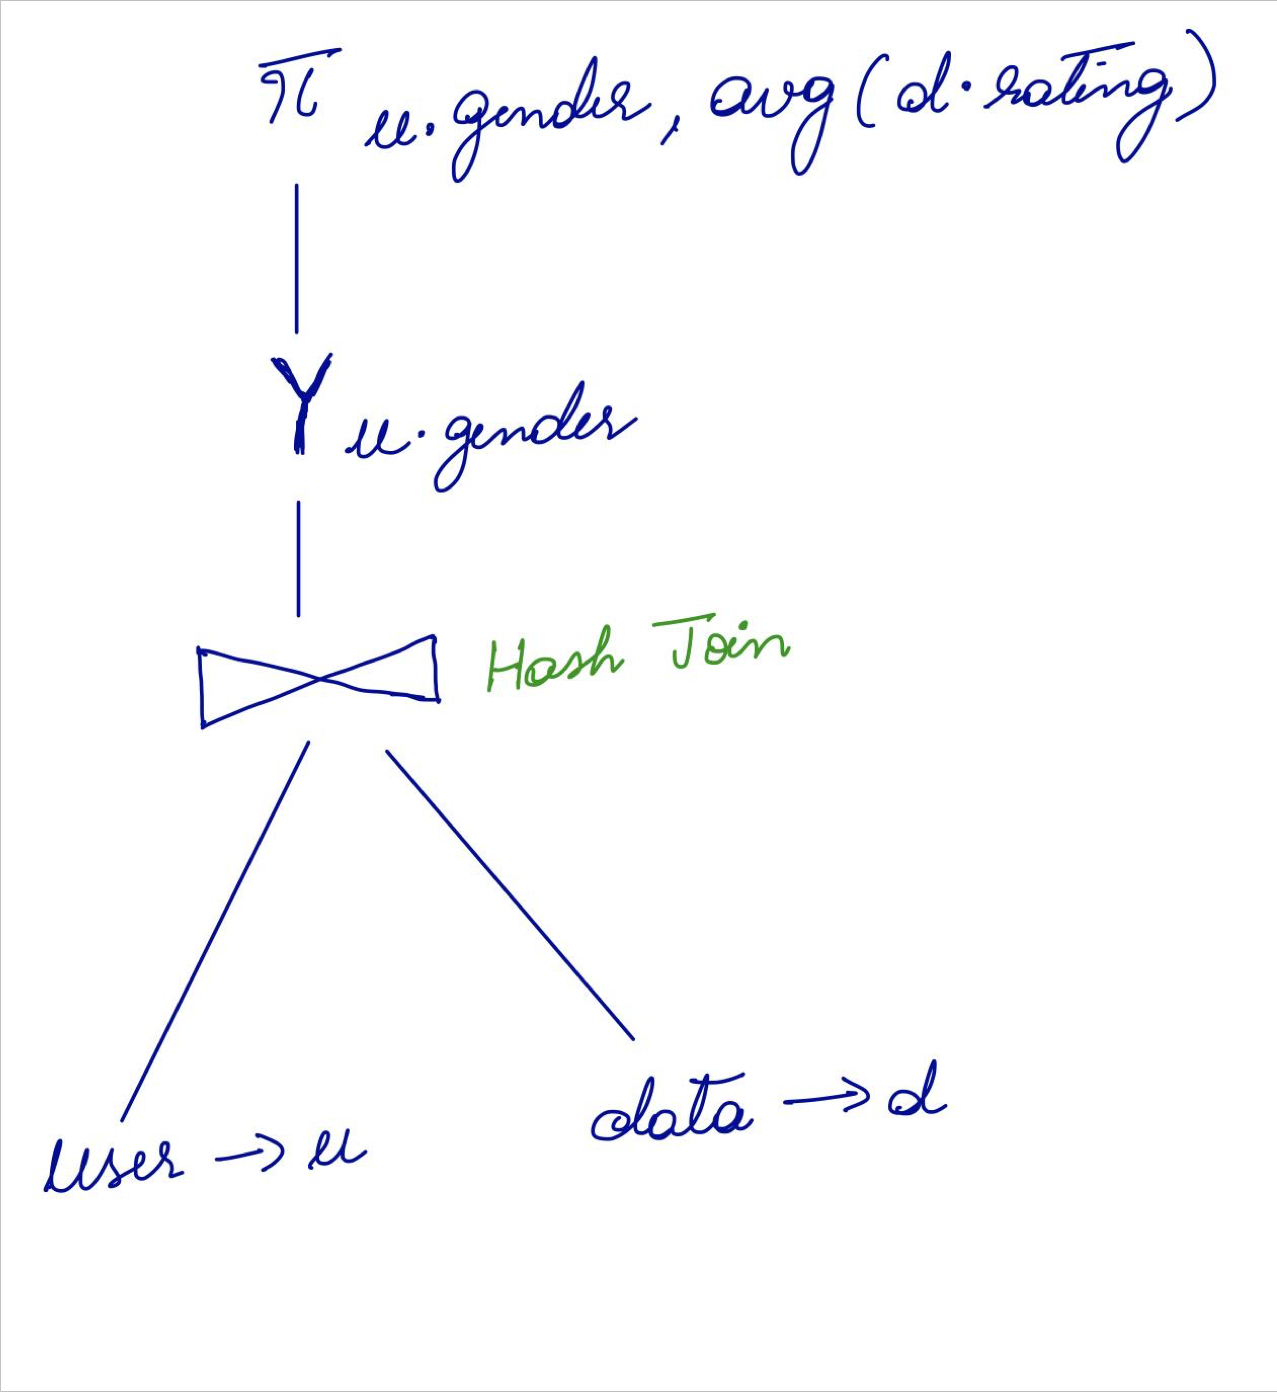 π u.gender, avg(d.rating)
γ u.gender
Hash Join
user → u
data → d